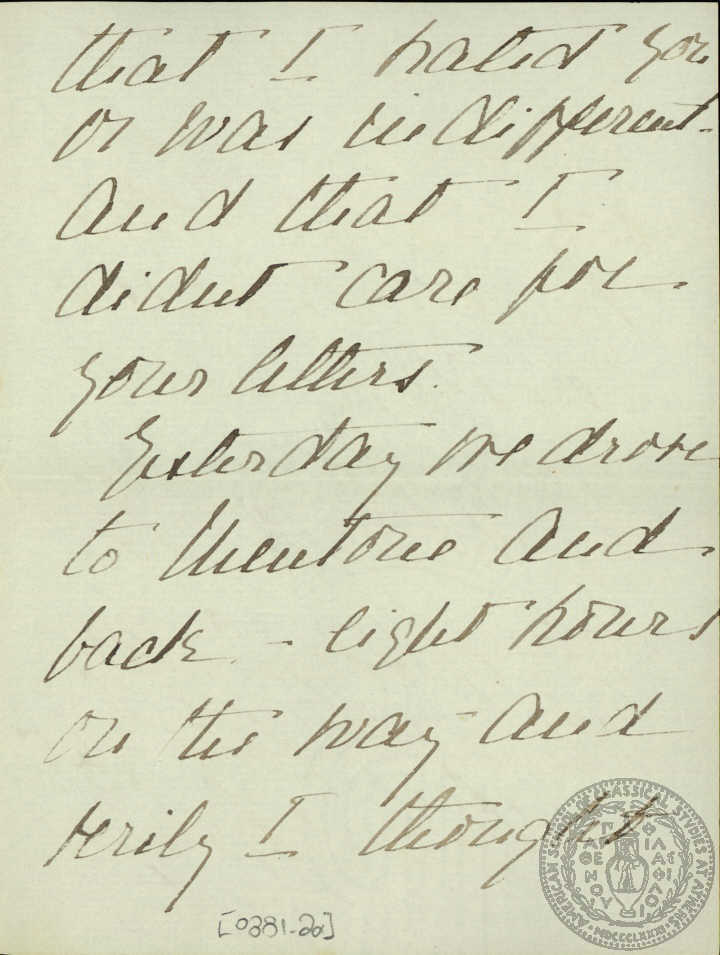 that I hated you
or was indifferent -
and that I
didnt care for
your letters.
Yesterday we drove
to Mentone and
back - eight hours
on the way and
verily I thought
AMERICAN SCHOOL OF CLASSICAL STUDIES AT ATHENS
MDCCCLXXXI
ΠΑΡΘΕΝΟΥ ΦΙΛΑΣ ΦΙΛΟΙ